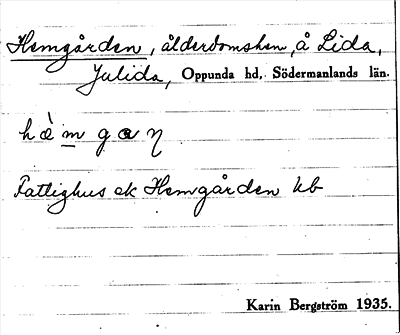 Hemgården, ålderdomshem, å Lida,
Julida, Oppunda hd, Södermanlands län.
hæ̀m gaɳ
Fattighus ek Hemgården kb
Karin Bergström 1935.